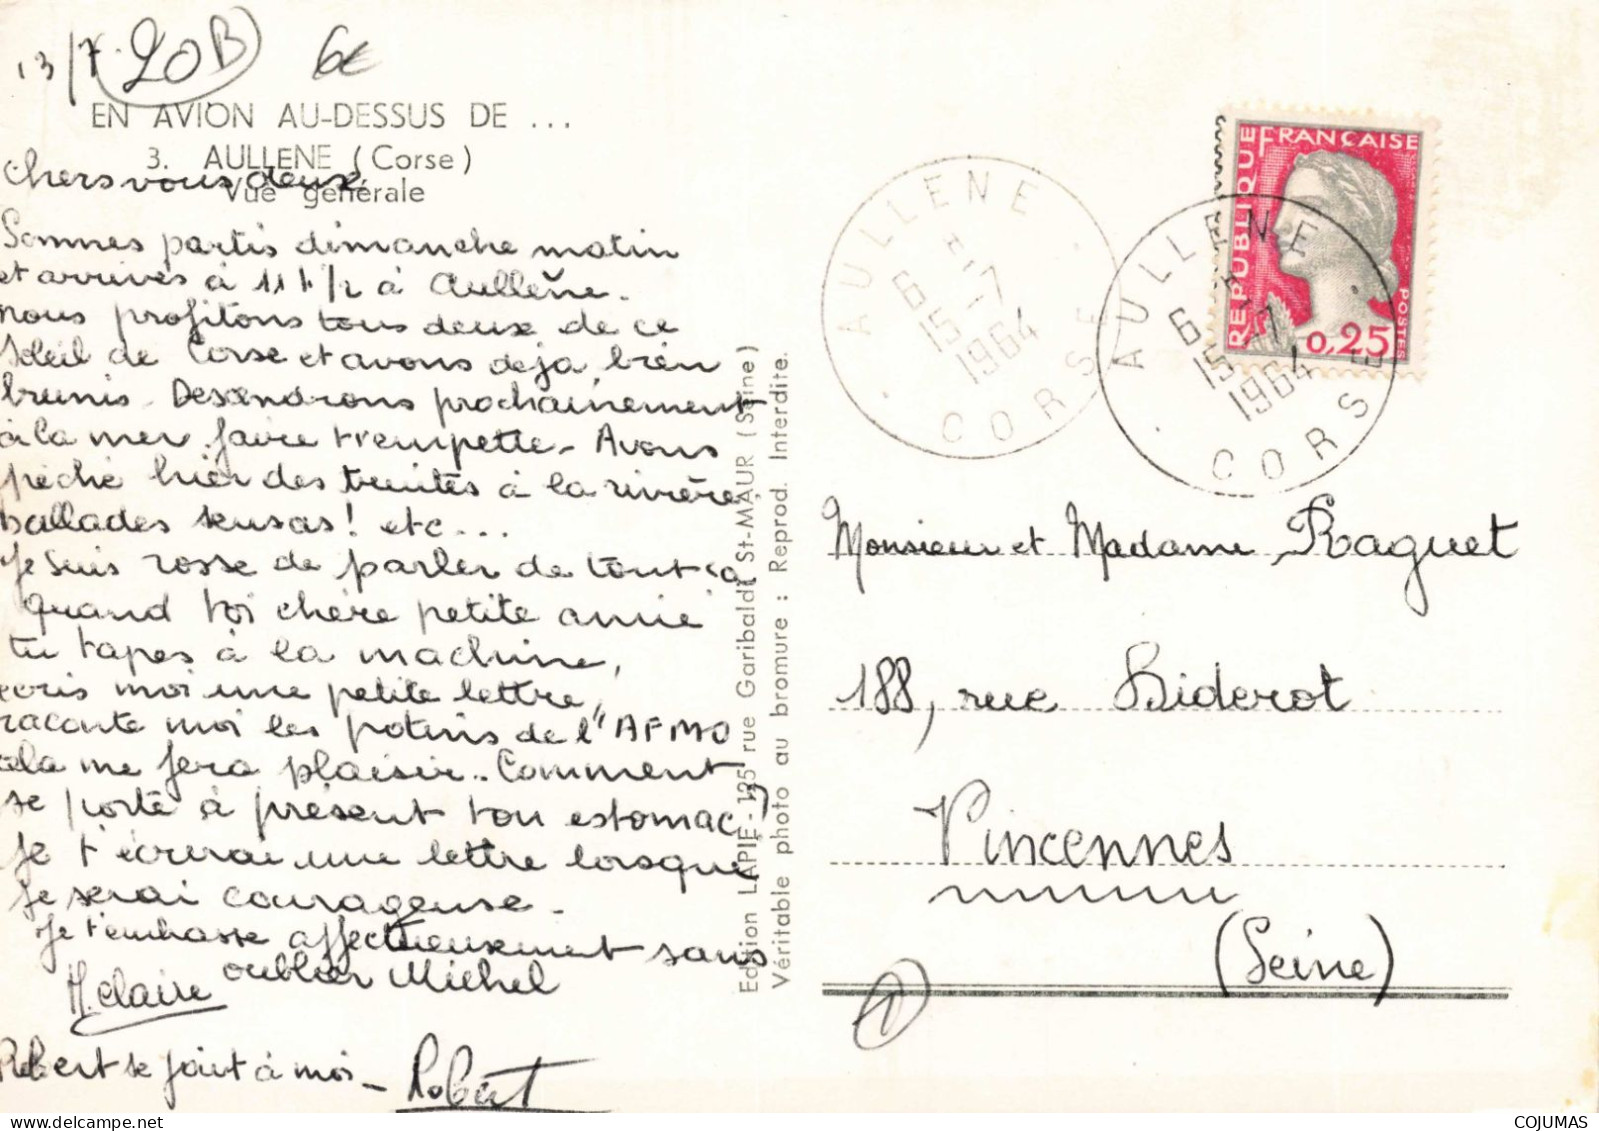 13/7
20B
6€
EN AVION AU-DESSUS DE ...
3. AULLENE (Corse)
Vue générale
Chers vous deux,
Sommes partis dimanche matin
et arrivés à 11 h 1/2 à Aullène.
nous profitons tous deux de ce
soleil de Corse et avons déjà bien
brunis. Descendrons prochainement
à la mer faire trempette. Avons
pêché hier des truites à la rivière,
ballades! etc...
Je suis rosse de parler de tout ça
quand toi chère petite amie
tu tapes à la machine,
écris moi une petite lettre,
raconte moi les potins de l'AFMO
cela me fera plaisir.. Comment
se porte à présent ton estomac?
Je t'écrirai une lettre lorsque
je serai courageuse.
Je t'embrasse affectueusement sans
oublier Michel
M. Claire
Robert se joint à moi -
Robert
Edition LAPIE - 125 rue Garibaldi, St-MAUR (Seine)
Véritable photo au bromure : Reprod. Interdite.
AULLENE
6 H
15 -7
1964
CORSE
AULLENE
6 H
15 -7
1964
CORSE
REPUBLIQUE FRANÇAISE
POSTES
0,25
Monsieur et Madame Raguet
188, rue Diderot
Vincennes
(Seine)
COJUMAS